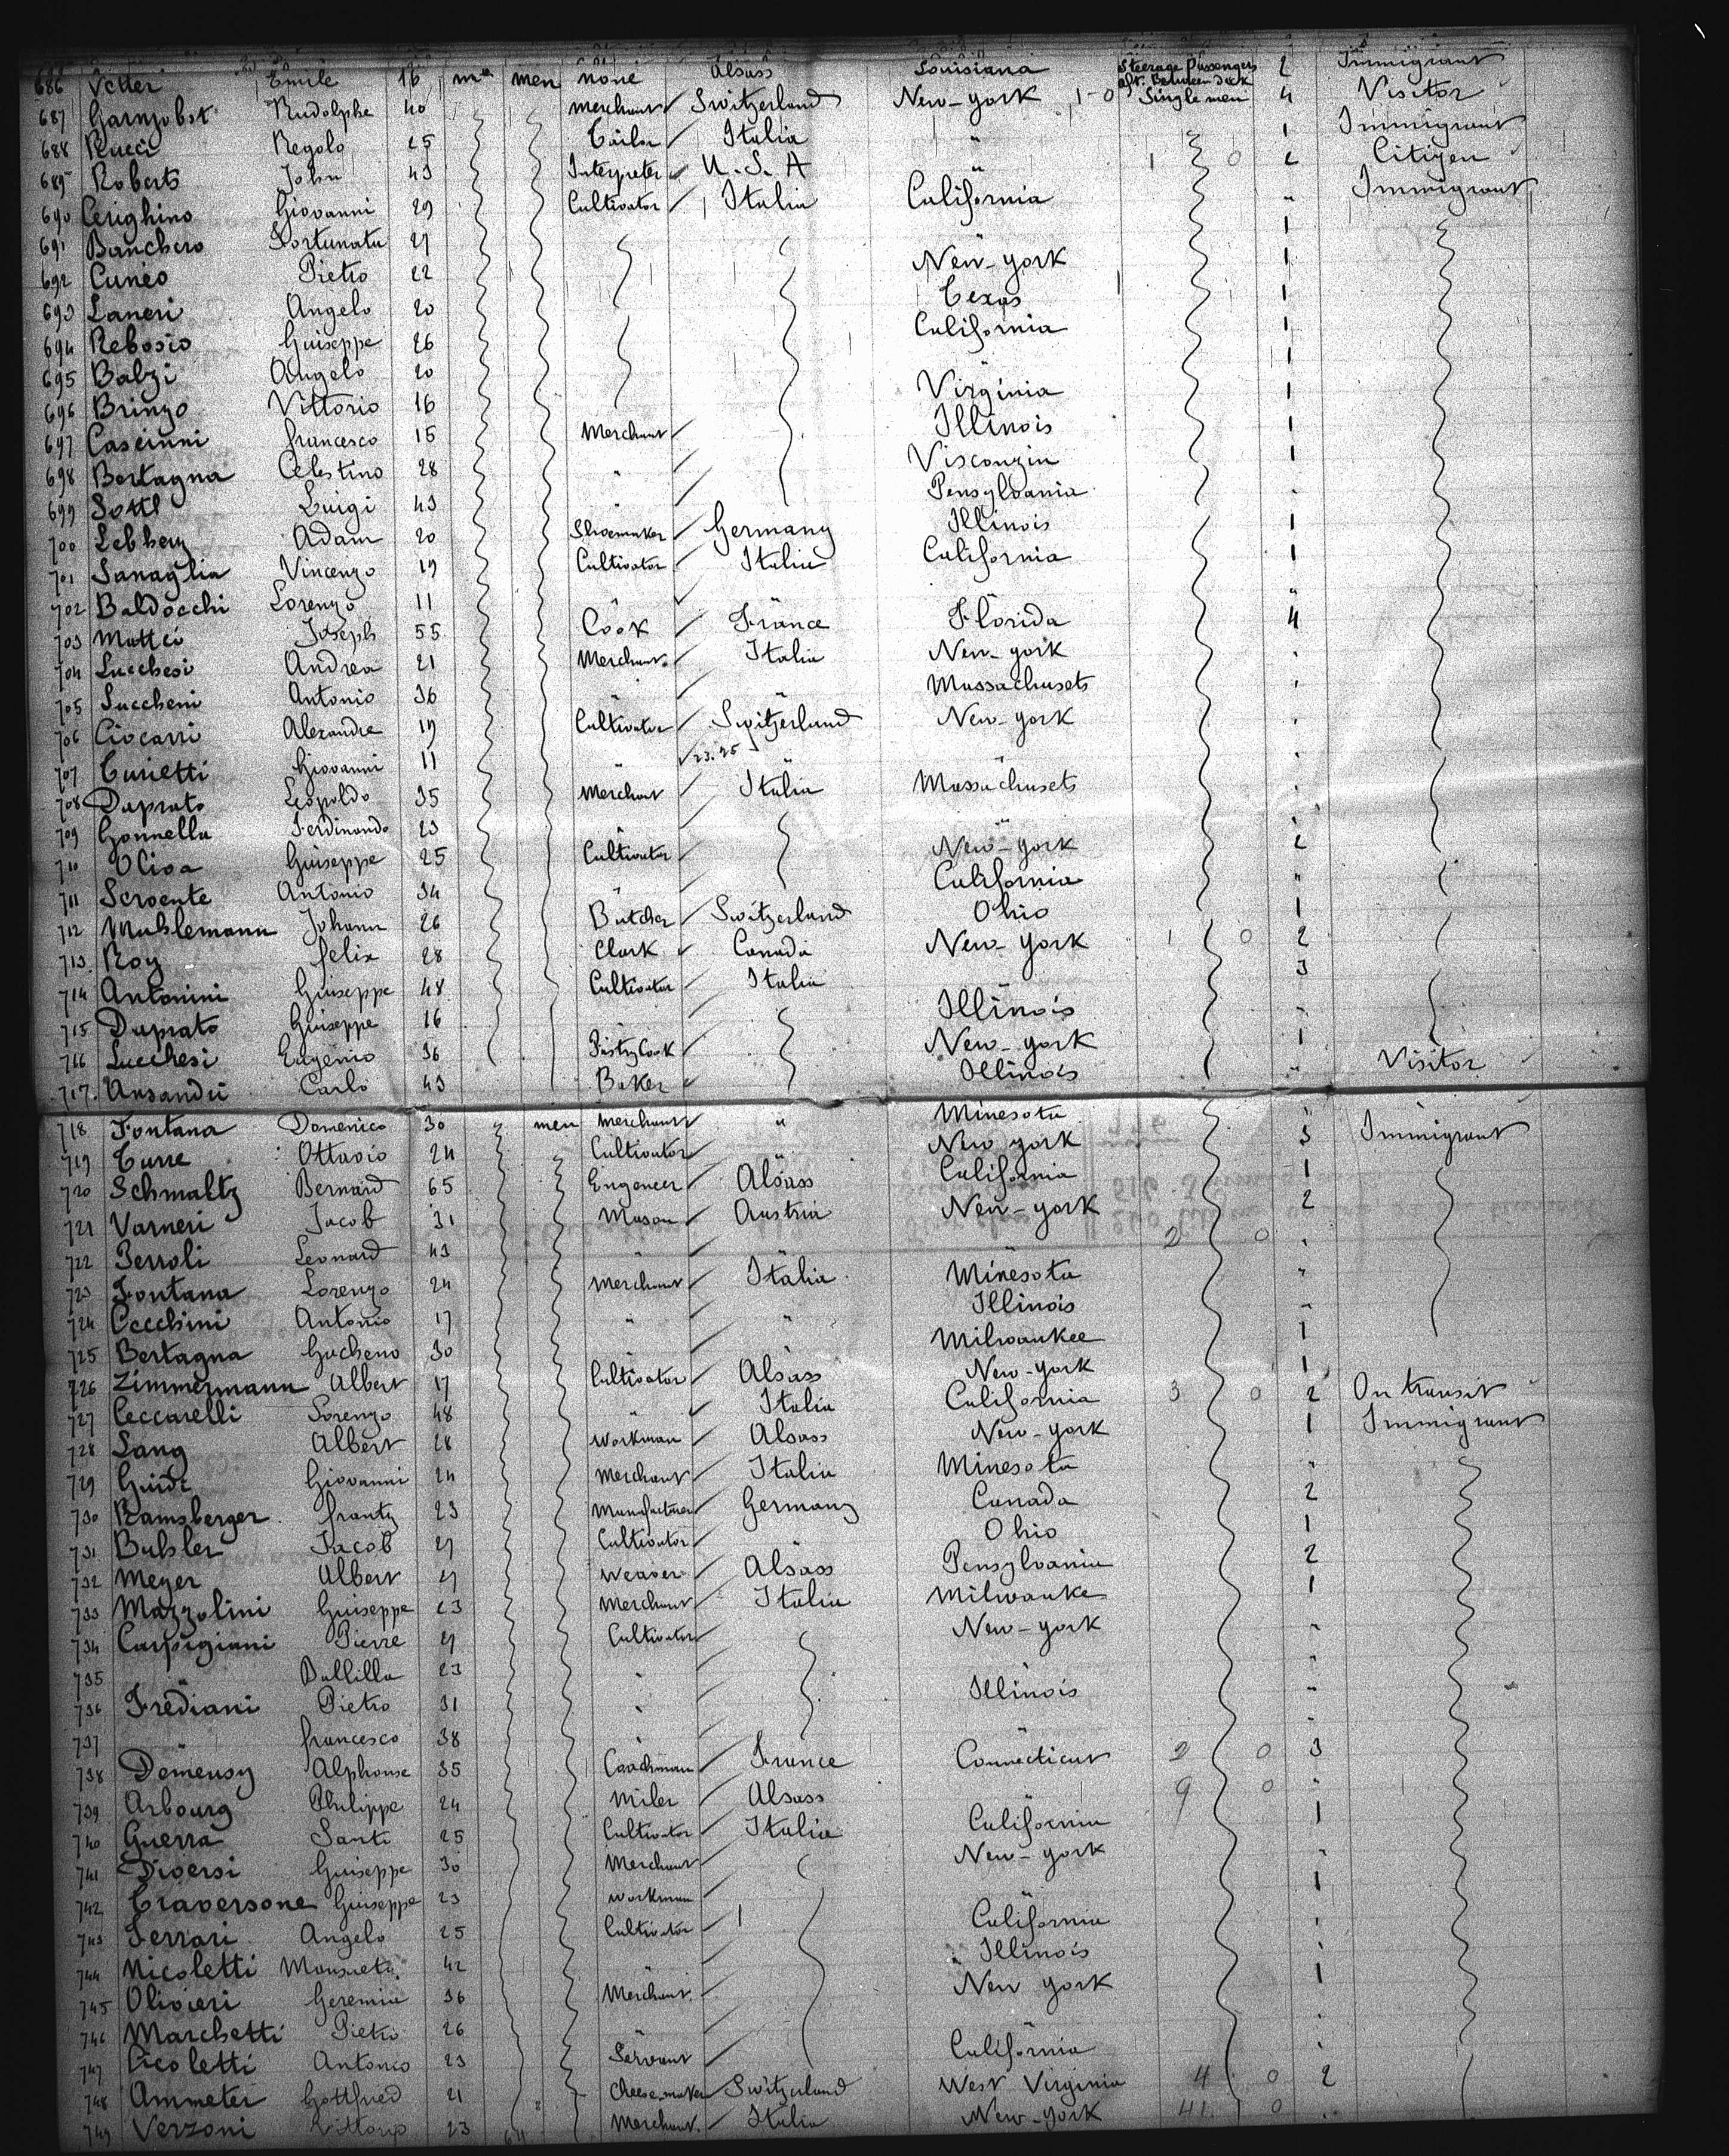 686 Vetter Emile 16 m men none Alsass Louisiana Steerage Passengers aft. Between deck 2 Immigrant
687 Garnjobst Rudolphe 40 merchant Switzerland New-york 1-0 Single men 4 Visitor
688 Rucci Regolo 25 Tailor Italia " 1 Immigrant
689 Roberts John 43 Interpreter U.S.A " 1 0 2 Citizen
690 Cerighino Giovanni 29 Cultivator Italia California " Immigrant
691 Banchero Fortunatu 27 " 1
692 Cuneo Pietro 22 New-york 1
693 Laneri Angelo 20 Texas 1
694 Rebosio Guiseppe 26 California 1
695 Balzi Angelo 20 " 1
696 Bringo Vittorio 16 Virginia 1
697 Cascinni francesco 15 Merchant Illinois 1
698 Bertagna Celestino 28 " Visconzin 1
699 Sottl Luigi 43 " Pensylvania "
700 Adam 20 Shoemaker Germany Illinois 1
701 Sanaglia Vincenzo 19 Cultivator Italia California 1
702 Baldocchi Lorenzo 11 " "
703 Mattei Joseph 55 Cook France Florida 4
704 Lucchesi Andrea 21 Merchant Italia New-york "
705 Luccheni Antonio 36 " Massachusets "
706 Ciocarri Alexandre 19 Cultivator Switzerland New-york "
707 Turietti Giovanni 11 " "
708 Duprato Leopoldo 35 Merchant Italia Massachusets "
709 Gonnella Ferdinando 23 " "
710 Oliva Guiseppe 25 Cultivator New-york 2
711 Servente Antonio 34 " California "
712 Muhlemann Johann 26 Butcher Switzerland Ohio 1
713 Roy felix 28 Clark Canada New-york 1 0 2
714 Antonini Giuseppe 48 Cultivator Italia " 3
715 Duprato Guiseppe 16 " Illinois "
716 Lucchesi Eugenio 36 Pastry Cook New-york 1
717 Carlo 43 Baker Illinois " Visitor
718 Fontana Domenico 30 men merchant " Minesota " Immigrant
719 Turre Ottavio 24 Cultivator New york 3
720 Schmaltz Bernard 65 Engeneer Alsass California 1
721 Varneri Jacob 31 Mason Austria New-york 2
722 Perroli Leonard 43 " " 2 0 "
723 Fontana Lorenzo 24 Merchant Italia Minesota "
724 Cecchini Antonio 17 " " Illinois "
725 Bertagna 30 Milwaukee 1
726 Zimmermann Albert 17 Cultivator Alsass New-york 1
727 Ceccarelli Lorenzo 48 " Italia California 3 0 2 On transit
728 Lang Albert 28 Workman Alsass New-york 1 Immigrant
729 Guidi Giovanni 24 Merchant Italia Minesota "
730 Ramsberger frantz 23 Manufacturer Germany Canada 2
731 Buhler Jacob 27 Cultivator Ohio 1
732 Meyer Albert 27 Weaver Alsass Pensylvania 2
733 Mazzolini Guiseppe 23 Merchant Italia Milwauke 1
734 Carpigiani Pierre 27 Cultivator New-york "
735 Ballilla 23 " "
736 Frediani Pietro 31 " Illinois "
737 " francesco 38 "
738 Demeusy Alphonse 35 Coachman France Connecticut 2 0 3
739 Arbourg Philippe 24 Miler Alsass 9 0 "
740 Guerra Santi 25 Cultivator Italia California 1
741 Diversi Guiseppe 30 Merchant New-york "
742 Traversone Guiseppe 23 Workman 1
743 Ferrari Angelo 25 Cultivator California "
744 Nicoletti 42 Illinois "
745 Olivieri Geremia 36 Merchant New york 1
746 Marchetti Pietro 26 "
747 Picoletti Antonio 23 Servant California "
748 Ammeter Gottfried 21 Cheese maker Switzerland West Virginia 4 0 2
749 Verzoni Vittorio 23 Merchant Italia New-york 41 0 "